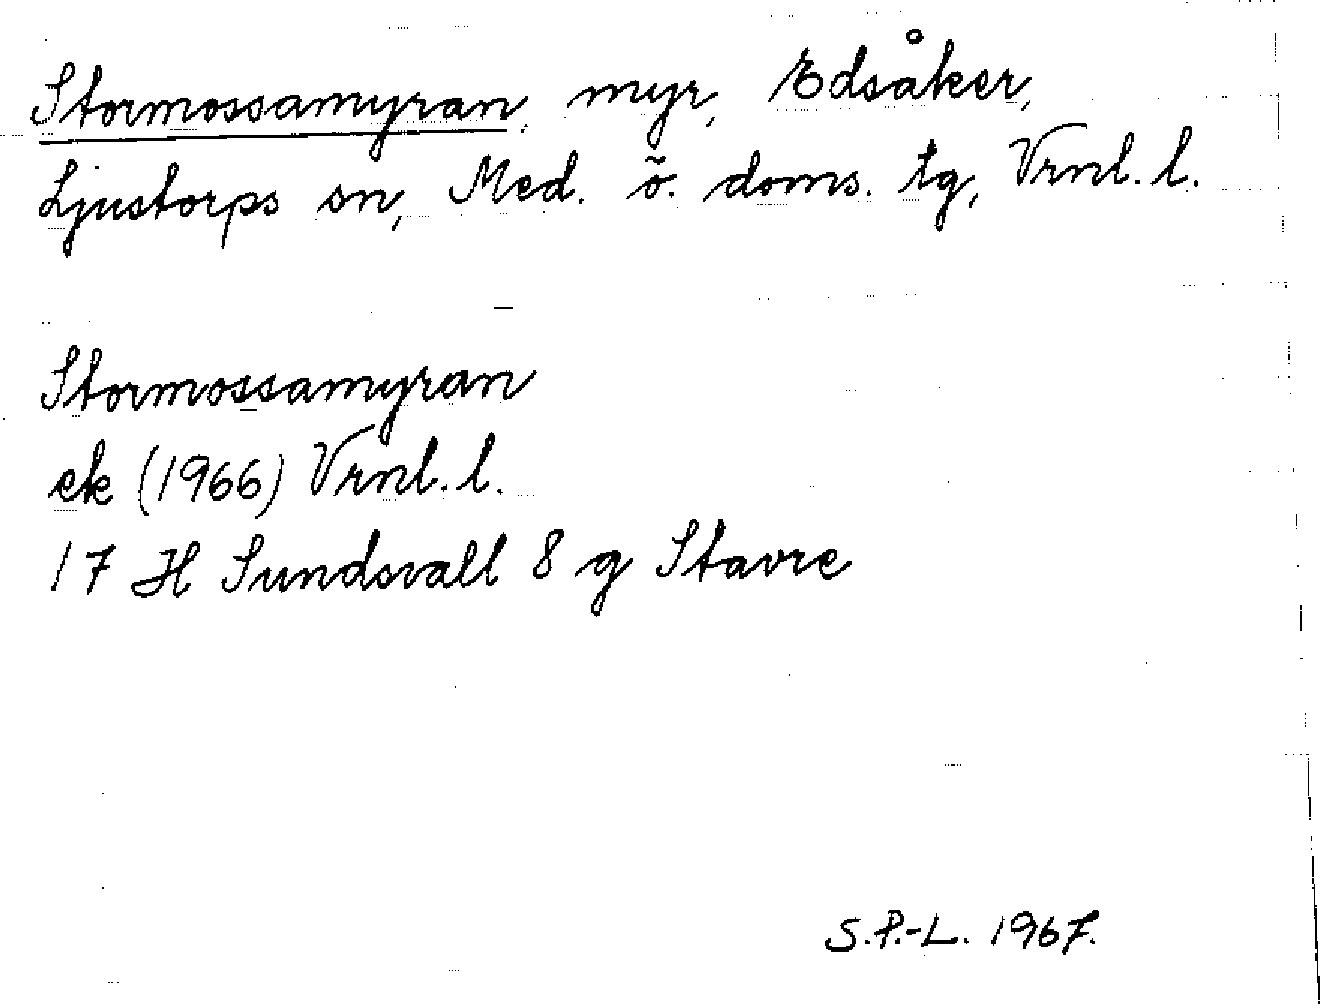 Stormossamyran, myr, Edsåker,
Ljustorps sn, Med. ö. doms. tg, Vrnl. l.
Stormossamyran
ek (1966) Vrnl. l.
17 H Sundsvall 8 g Stavre
S.P.-L. 1967.